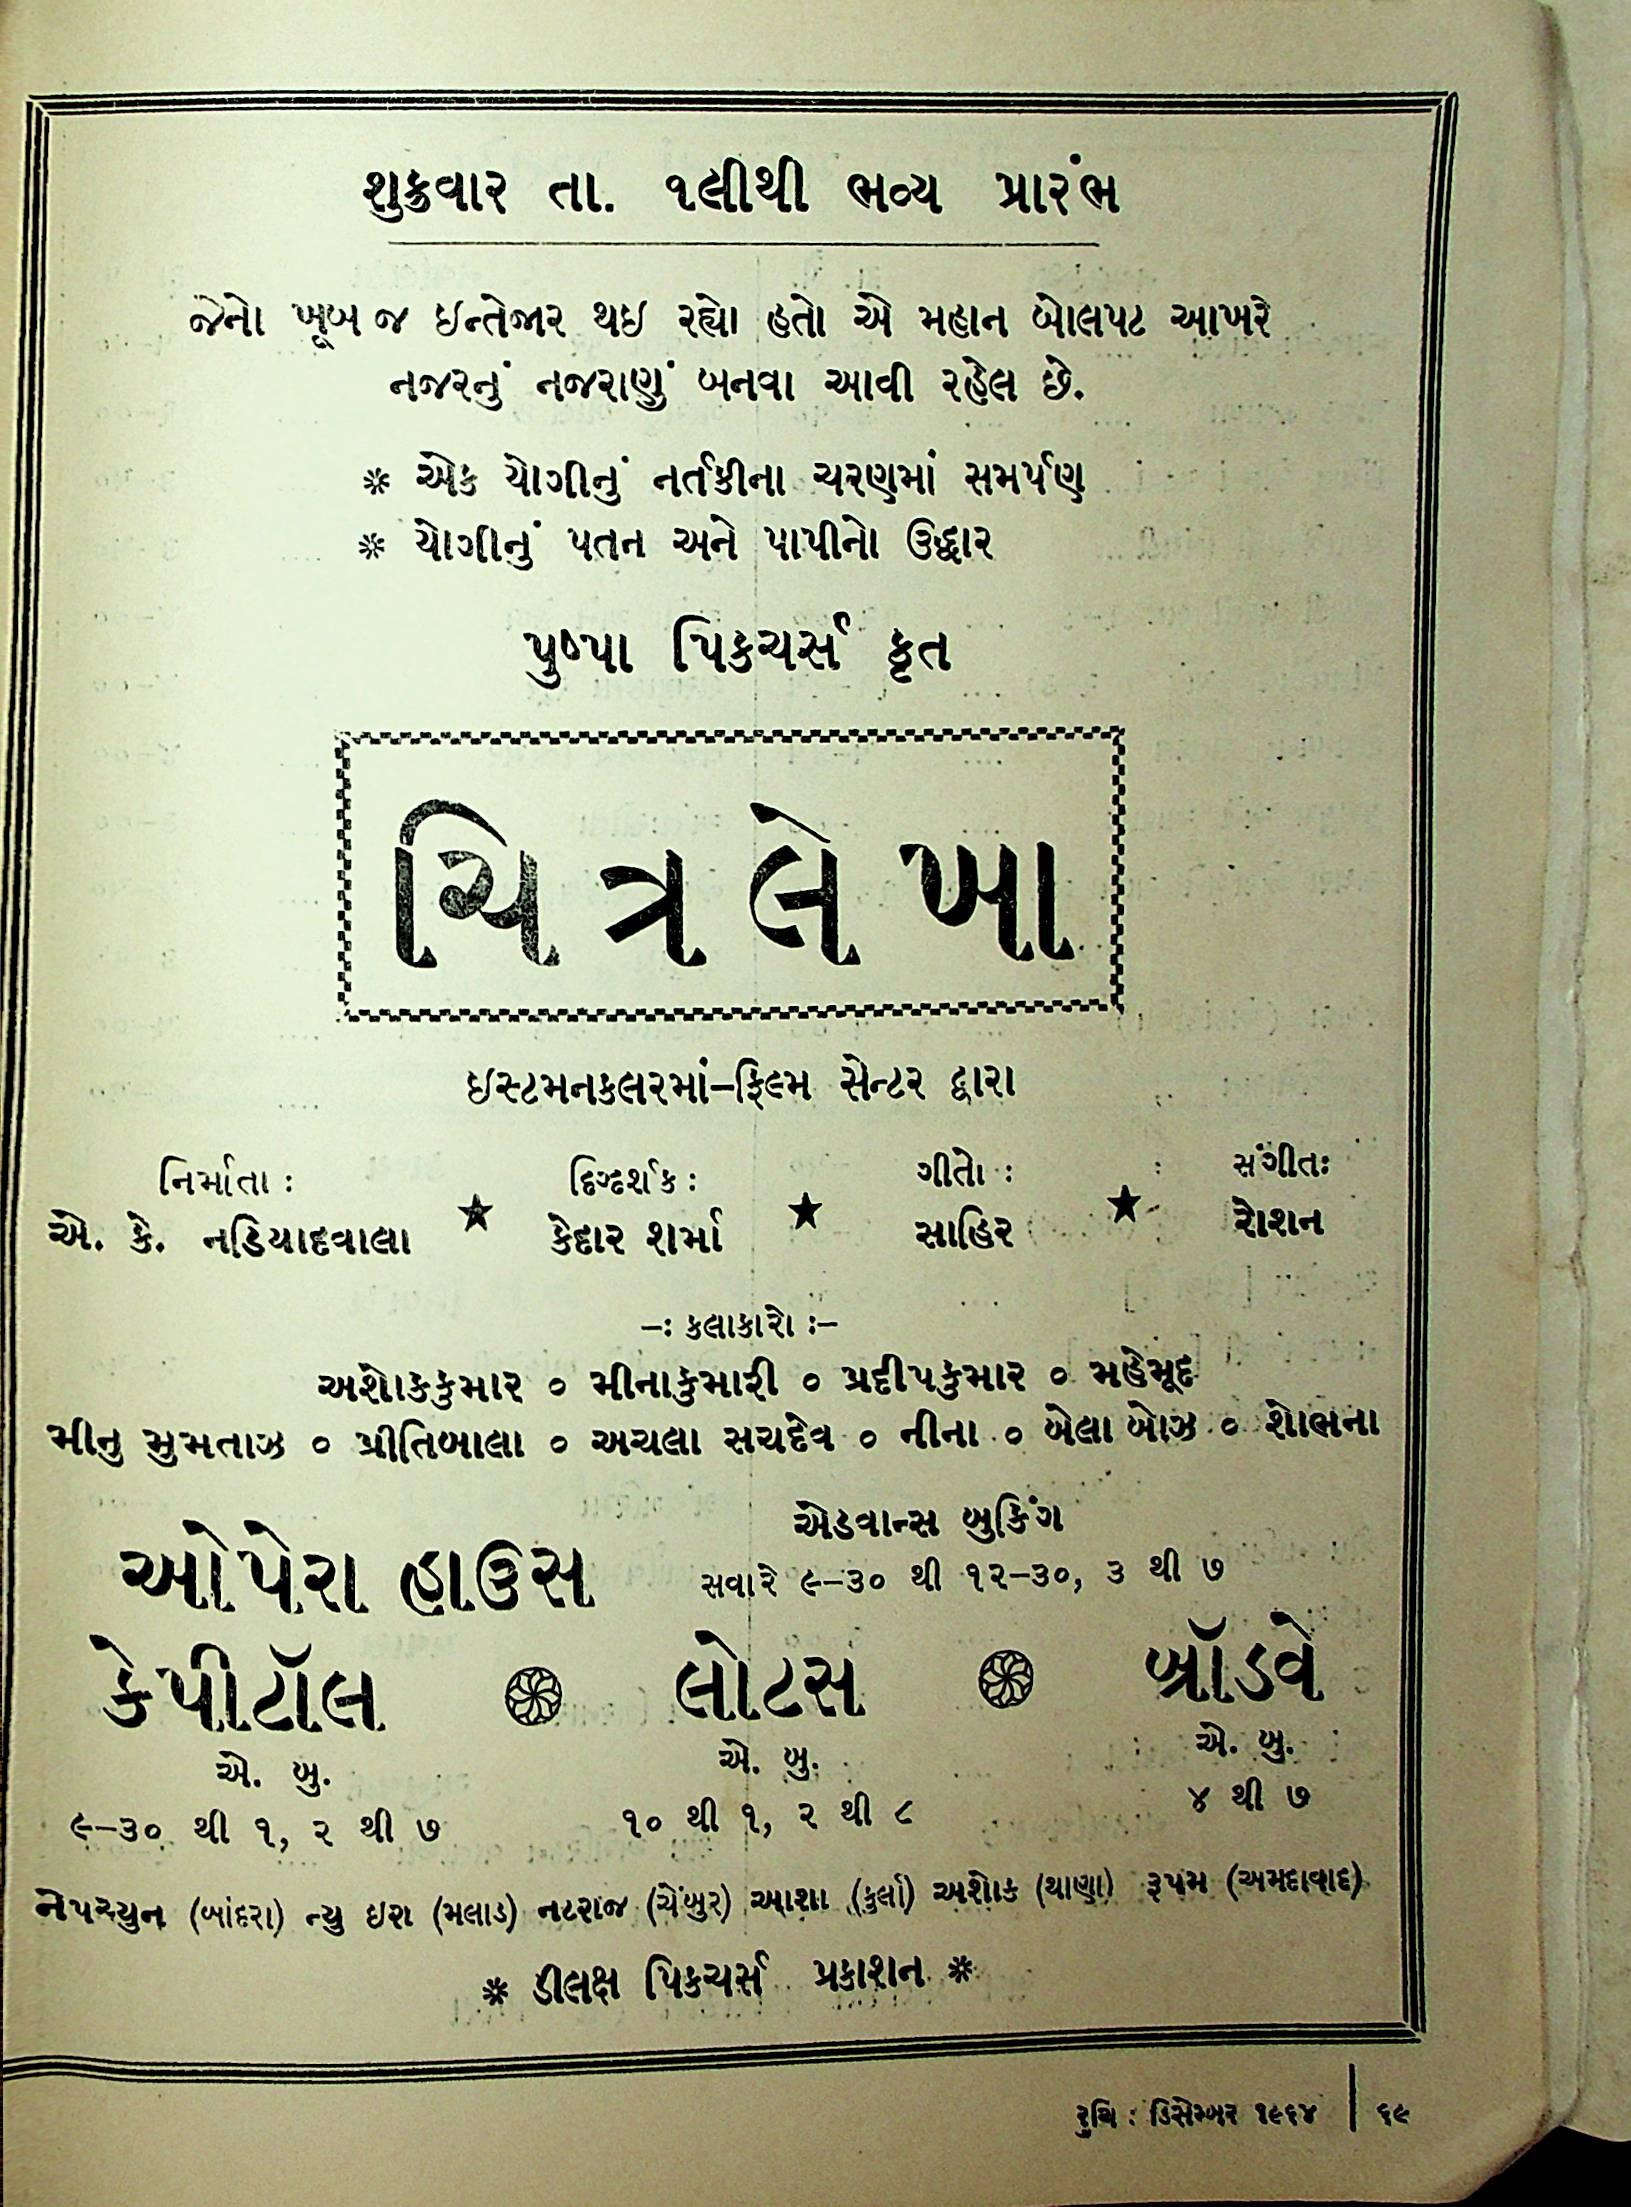 શુક્રવાર તા. ૧લીથી ભવ્ય પ્રારંભ
જેનો ખૂબ જ ઇન્તેજાર થઇ રહ્યો હતો એ મહાન બોલપટ આખરે
નજરનું નજરાણું બનવા આવી રહેલ છે.
* એક યોગીનું નર્તકીના ચરણમાં સમર્પણ
* યોગીનું પતન અને પાપીનો ઉદ્ધાર
પુષ્પા પિકચર્સ કૃત
ચિત્રલેખા
ઇસ્ટમનકલરમાં–ફિલ્મ સેન્ટર દ્વારા
નિર્માતા : દિગ્દર્શક : ગીતો : સંગીત:
એ. કે. નડિયાદવાલા ★ કેદાર શર્મા ★ સાહિર ★ રોશન
–: કલાકારો :–
અશોકકુમાર ૦ મીનાકુમારી ૦ પ્રદીપકુમાર ૦ મહેમૂદ
મીનુ મુમતાઝ ૦ પ્રીતિબાલા ૦ અચલા સચદેવ ૦ નીના ૦ બેલા બોઝ ૦ શોભના
ઓપેરા હાઉસ
એડવાન્સ બુકિંગ
સવારે ૯–૩૦ થી ૧૨–૩૦, ૩ થી ૭
કેપીટૉલ લોટસ બ્રૉડવે
એ. બુ. એ. બુ. એ. બુ.
૯–૩૦ થી ૧, ૨ થી ૭ ૧૦ થી ૧, ૨ થી ૮ ૪ થી ૭
નેપચ્યુન (બાંદરા) ન્યુ ઇરા (મલાડ) નટરાજ (ચેંબુર) આશા (કુર્લા) અશોક (થાણા) રૂપમ (અમદાવાદ)
* ડીલક્ષ પિકચર્સ પ્રકાશન *
રુચિ : ડિસેમ્બર ૧૯૬૪ | ૬૯